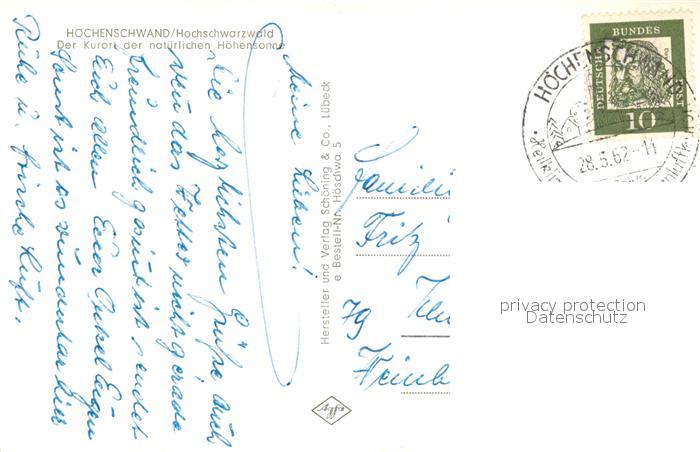 HÖCHENSCHWAND/Hochschwarzwald
Der Kurort der natürlichen Höhensonne
Meine Lieben!
Die herzlichsten Grüße auch
wenn das Wetter nicht gerade
freundlich gesinnt ist sendet
Euch allen Euer Onkel Eugen
Sonst ist es wunderbar hier
Ruhe u. frische Luft.
Hersteller und Verlag Schöning & Co., Lübeck
e Bestell-Nr. Hösdlwa 5
Agfa
DEUTSCHE
BUNDES
POST
10
HÖCHENSCHWAND
28.5.62-11
Familie
Fritz
7g
Weinb
privacy protection
Datenschutz